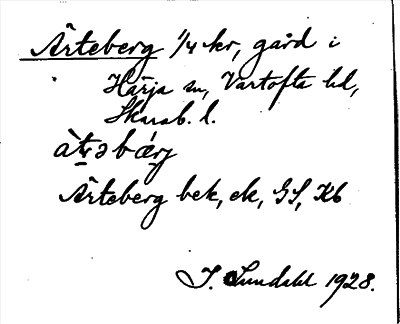 Ärteberg 1/4 kr, gård i
Härja sn, Vartofta hd,
Skarab. l.
Ärteberg bek, ek, GS, Kb
I. Lundahl 1928.